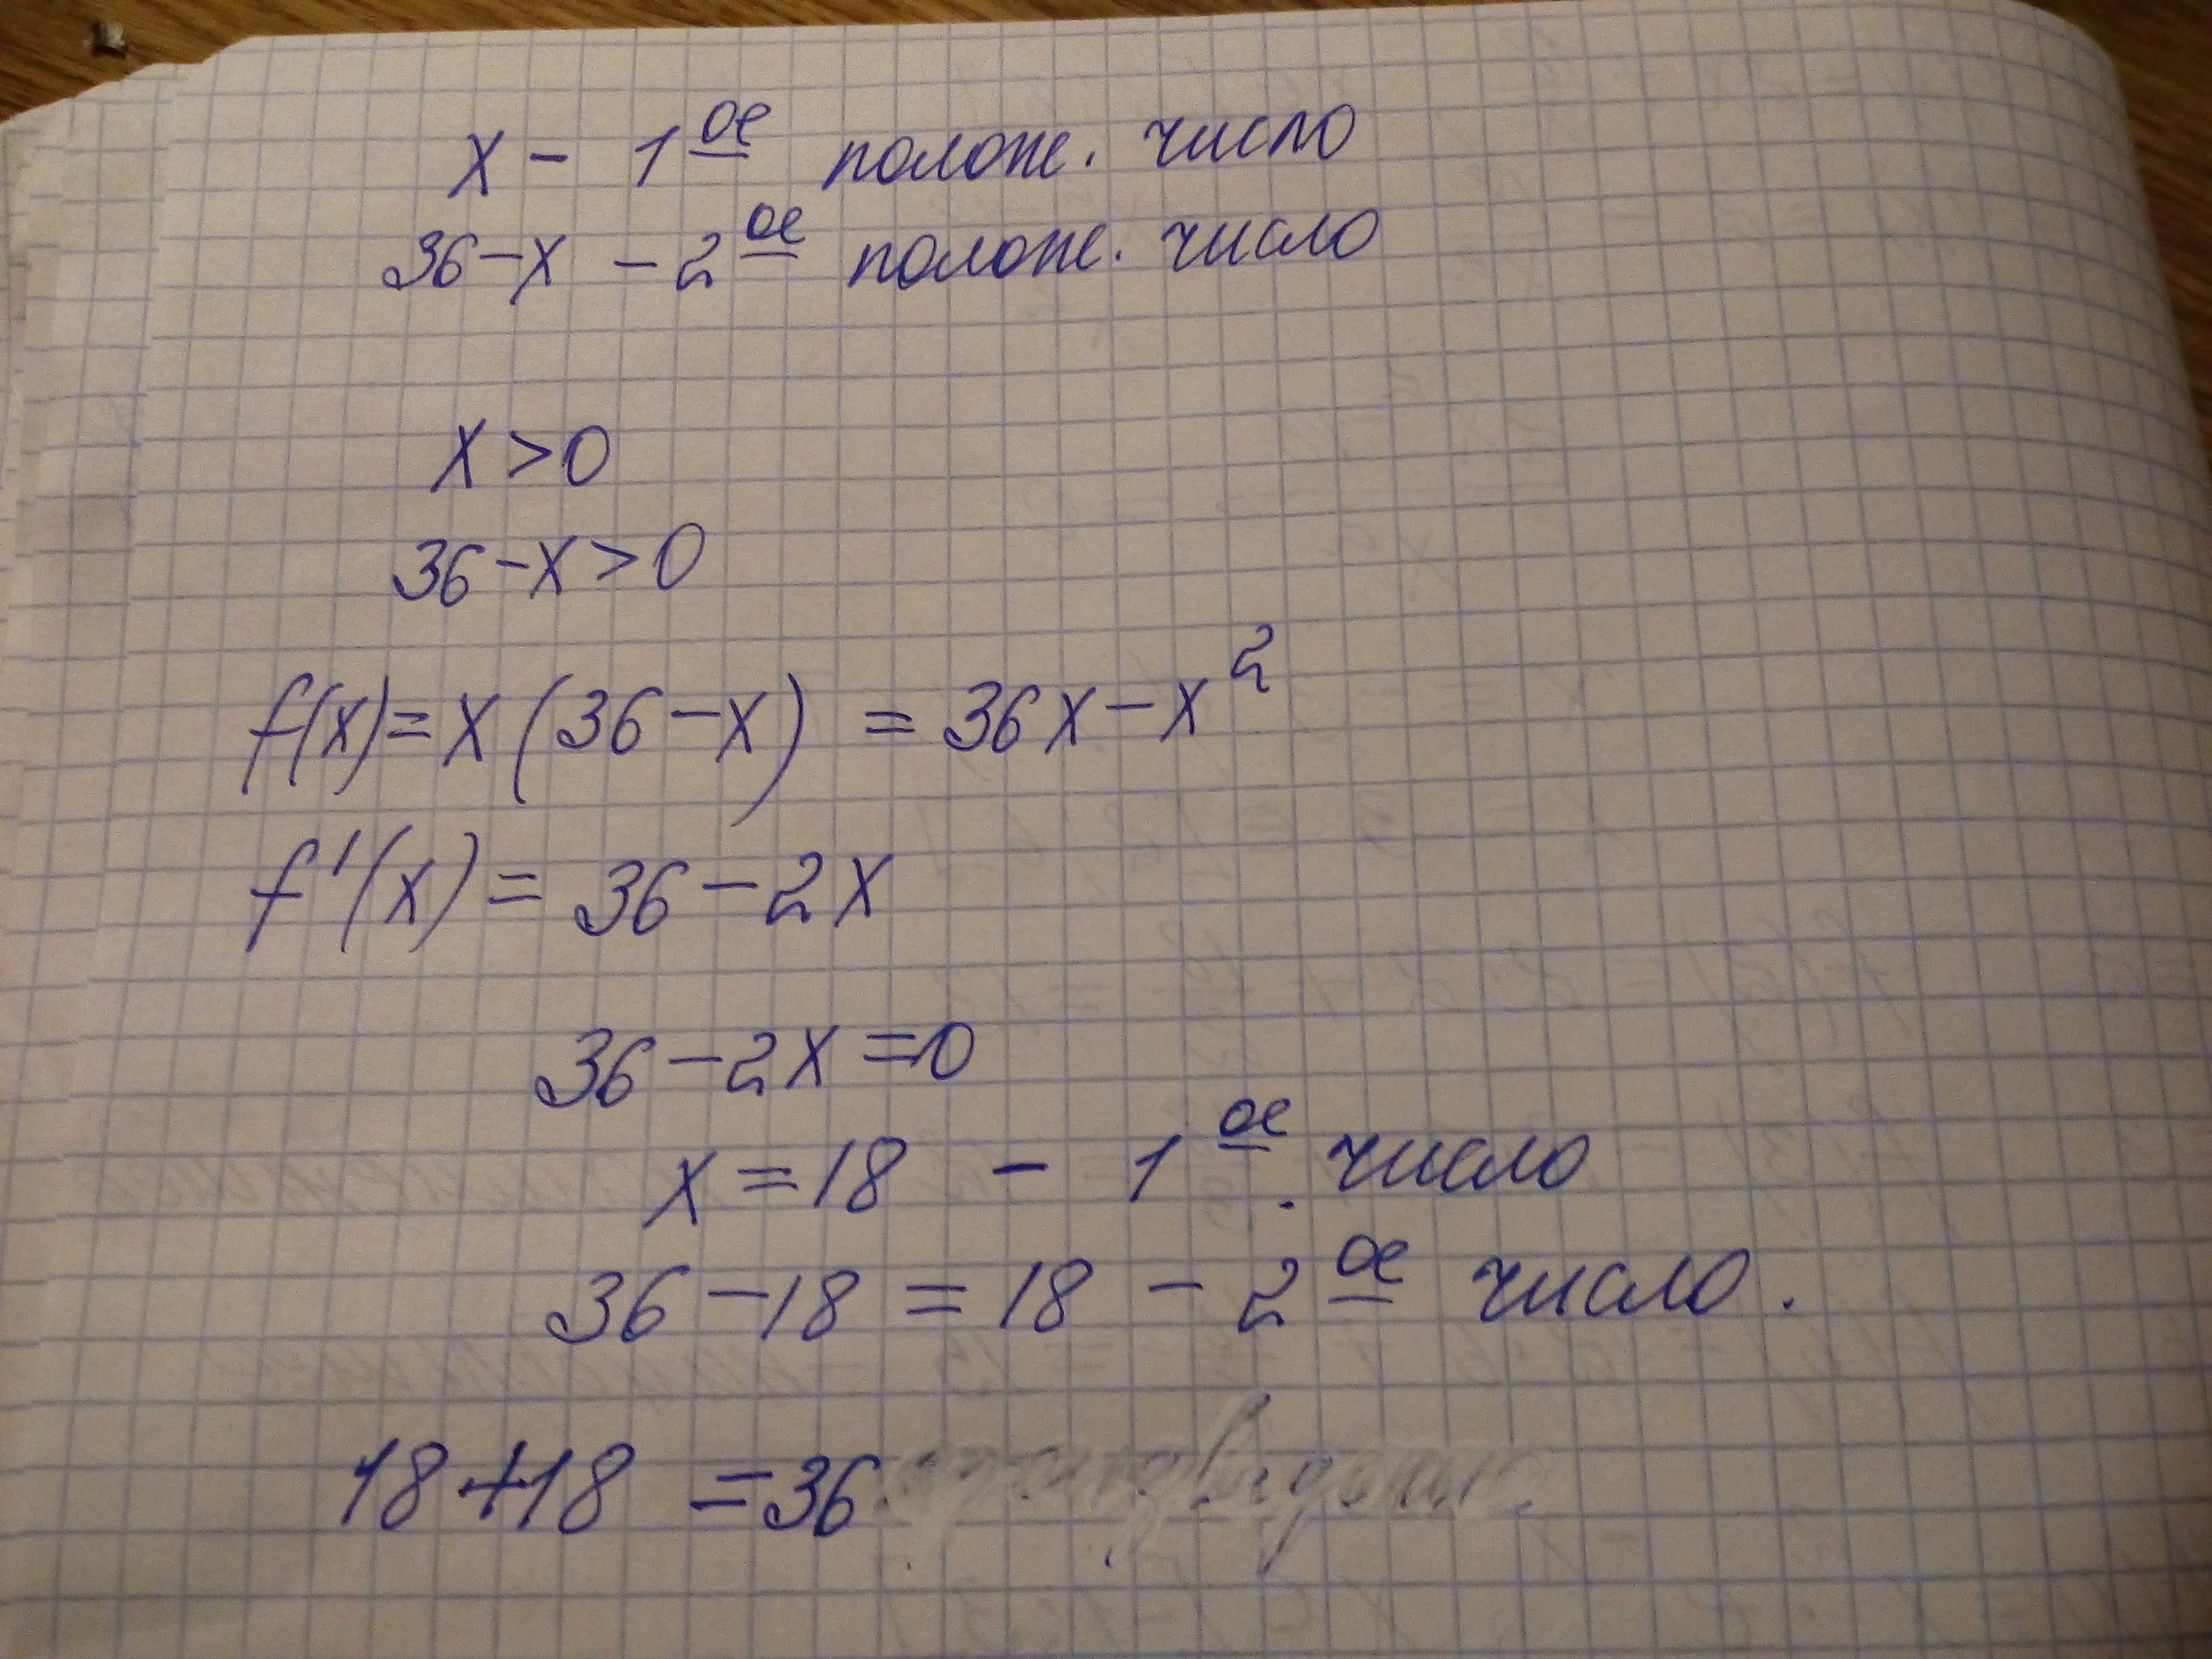 x - 1ое полож. число
36-x - 2ое полож. число
x>0
36-x>0
f(x)=x(36-x) = 36x-x²
f'(x)= 36-2x
36-2x=0
x=18 - 1ое число
36-18 = 18 - 2ое число.
18+18 =36